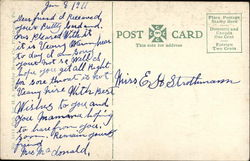 Jan 8 1911
Dear friend I received
your Pretty Card and
was Pleased With it
it is Very Warm here
to day it a Been
your but so Well I
hope you get all right
in sore throat is not
Very nice With Best
Wishes to you and
you Mamama hoping
to hear from you
soon. Remain your
friend
Mrs McDonald.
POST CARD
Place Postage
Stamp Here
Domestic and
Canada
One Cent
Foreign
Two Cents
Miss E H Strothmann